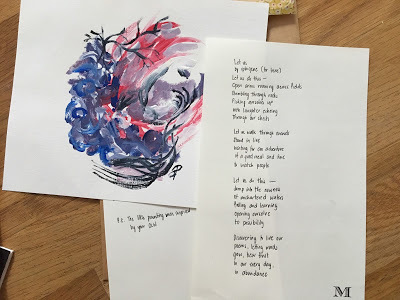 Let us
by caringone (for Laura)
Let us do this —
Open arms running across fields
Stumbling through rocks
Picking ourselves up
with laughter echoing
through our chests

Let us walk through crowds
Stand in line
Waiting for an adventure
of a good meal and time
to watch people

Let us do this —
Jump into the newness
of unchartered waters
Failing and learning
opening ourselves
to possibility

Discovering to live our
poems, letting words
grow, bear fruit
in our every day,
in abundance

M

P.S. The little painting was inspired
by your